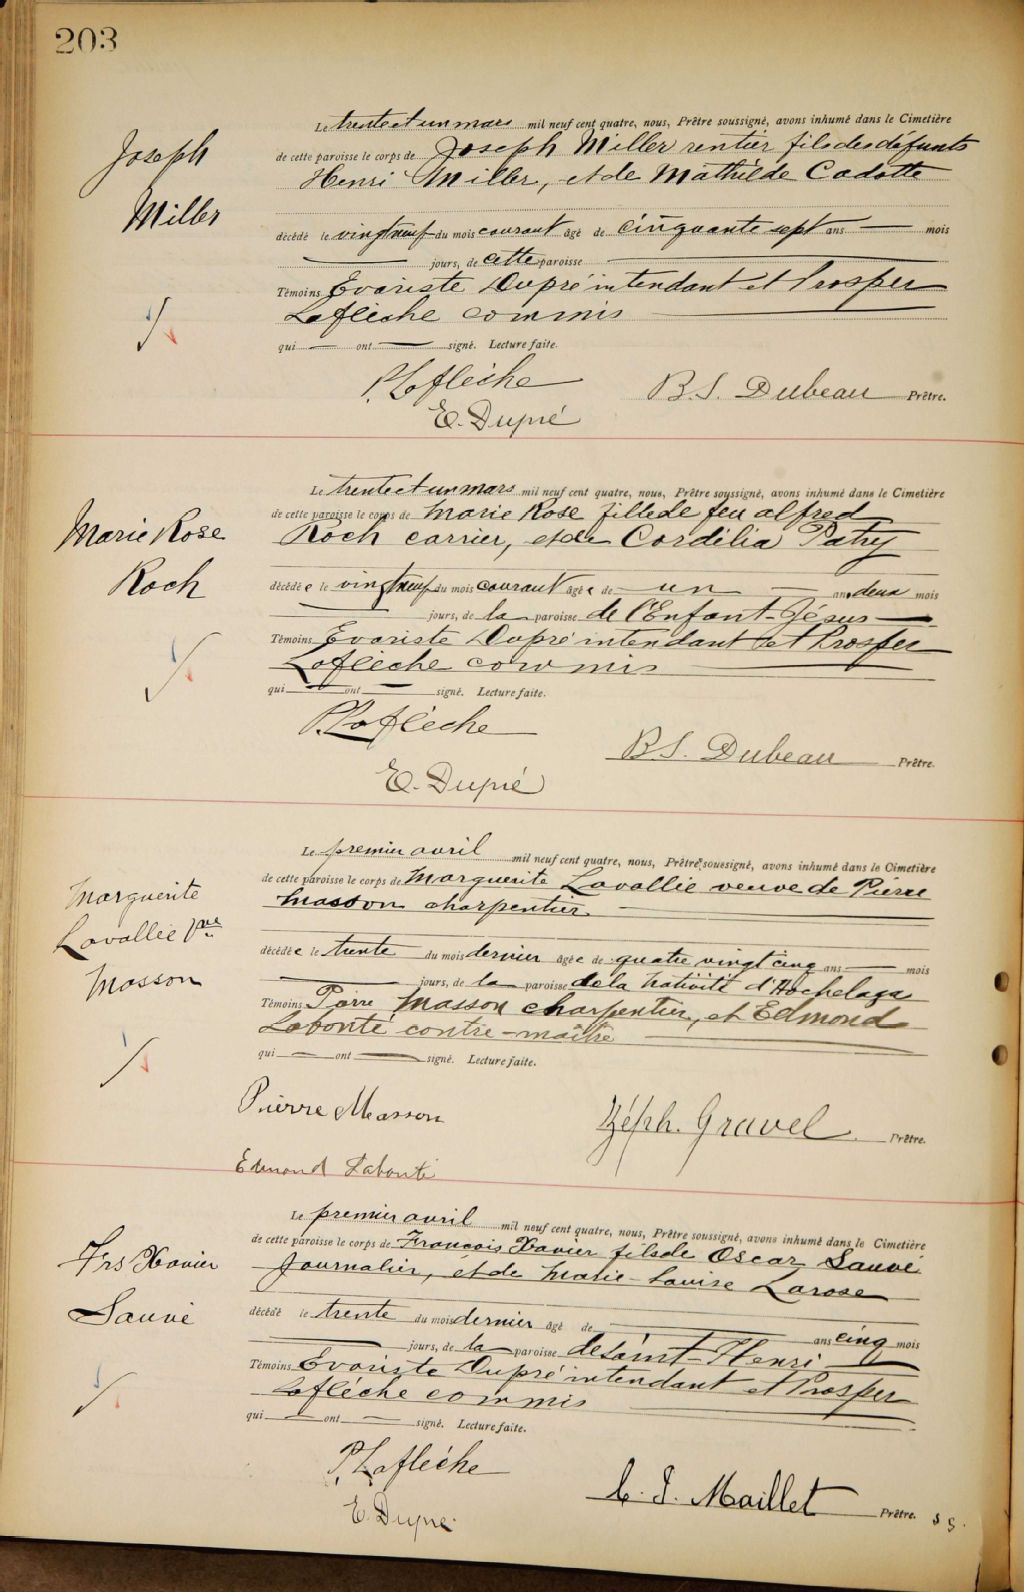 203
Joseph
Miller
Le trente et un mars mil neuf cent quatre, nous, Prêtre soussigné, avons inhumé dans le Cimetière
de cette paroisse le corps de Joseph Miller rentier fils des défunts
Henri Miller, et de Mathilde Cadotte
décédé le vingt neuf du mois courant âgé de cinquante sept ans — mois
— jours, de cette paroisse —
Témoins Evariste Dupré intendant et Prosper
Laflèche commis —
qui — ont — signé. Lecture faite.
P. Laflèche
B.S. Dubeau Prêtre.
E. Dupré
Marie Rose
Roch
Le trente et un mars mil neuf cent quatre, nous, Prêtre soussigné, avons inhumé dans le Cimetière
de cette paroisse le corps de Marie Rose fille de feu Alfred
Roch carrier, et de Cordélia Patry
décédée le vingt neuf du mois courant âgée de — un — an, deux mois
— jours, de la paroisse de l'Enfant-Jésus —
Témoins Evariste Dupré intendant et Prosper
Laflèche commis —
qui — ont — signé. Lecture faite.
P. Laflèche
B.S. Dubeau Prêtre.
E. Dupré
Marguerite
Lavallée Vve
Masson
Le premier avril mil neuf cent quatre, nous, Prêtre soussigné, avons inhumé dans le Cimetière
de cette paroisse le corps de Marguerite Lavallée veuve de Pierre
Masson charpentier —
décédée le trente du mois dernier âgée de quatre vingt cinq ans — mois
— jours, de la paroisse de la Nativité d'Hochelaga
Témoins Pierre Masson charpentier, et Edmond
Labonté contre-maître —
qui — ont — signé. Lecture faite.
Pierre Masson
Zéph. Gravel Prêtre.
Edmond Labonté
Frs Xavier
Sauvé
Le premier avril mil neuf cent quatre, nous, Prêtre soussigné, avons inhumé dans le Cimetière
de cette paroisse le corps de François Xavier fils de Oscar Sauvé
Journalier, et de Marie-Louise Larose
décédé le trente du mois dernier âgé de — ans cinq mois
— jours, de la paroisse de Saint-Henri —
Témoins Evariste Dupré intendant et Prosper
Laflèche commis —
qui — ont — signé. Lecture faite.
P. Laflèche
E. Dupré
C. J. Maillet Prêtre. s s.